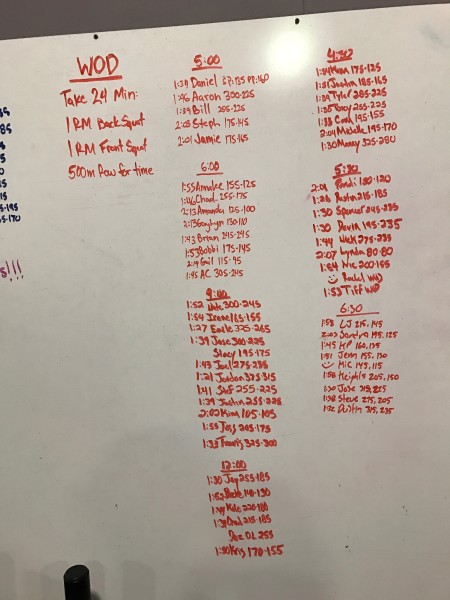 WOD
Take 24 Min:
1 RM Back Squat
1 RM Front Squat
500m Row for time
5:00
Daniel PR 160
1:46 Aaron 300-225
1:39 Bill 255-225
2:05 Steph 175-145
2:01 Jamie 175-165
6:00
1:55 Annalee 155-125
1:46 Chad 255-175
2:13 Amanda 125-100
130-110
1:43 Brian 245-245
1:53 Bobbi 175-145
2:14 Gail 115-95
1:45 AC 305-245
9:00
1:52 Nate 300-245
1:54 Irene 165-155
1:27 Earle 335-265
1:39 Jose 300-225
Stacy 195-175
1:43 Joel 275-235
1:21 Jordan 375-315
1:41 Stef 255-225
1:39 Justin 255-225
2:02 Kim 105-105
1:35 Travis 325-300
12:00
1:30 Jay 255-185
1:52 140-130
Kyle 220-180
Brad 215-185
DL 255
1:30 Kris 170-155
4:30
175-125
Justin 185-165
1:39 Tyler 285-225
1:35 Tony 255-225
195-155
2:04 Michelle 195-170
1:30 Manny 325-280
5:30
2:01 Randi 180-120
Austin 215-185
1:30 Spencer 245-235
1:30 Devin 195-235
1:44 Nick 275-235
2:07 Lynda 80-80
Nic 200-155
Rachel WU
1:53 Tiff WU
6:30
1:58 LJ 215, 145
2:03 Sandra 195, 125
1:45 KP 160, 135
1:51 Jenn 155, 130
Mic 145, 115
1:58 Heights 205, 150
Jose 315, 225
1:38 Steve 275, 205
Dustin 315, 235